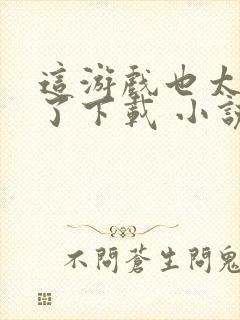 這游戲也太
了下載 小說
不問蒼生問鬼